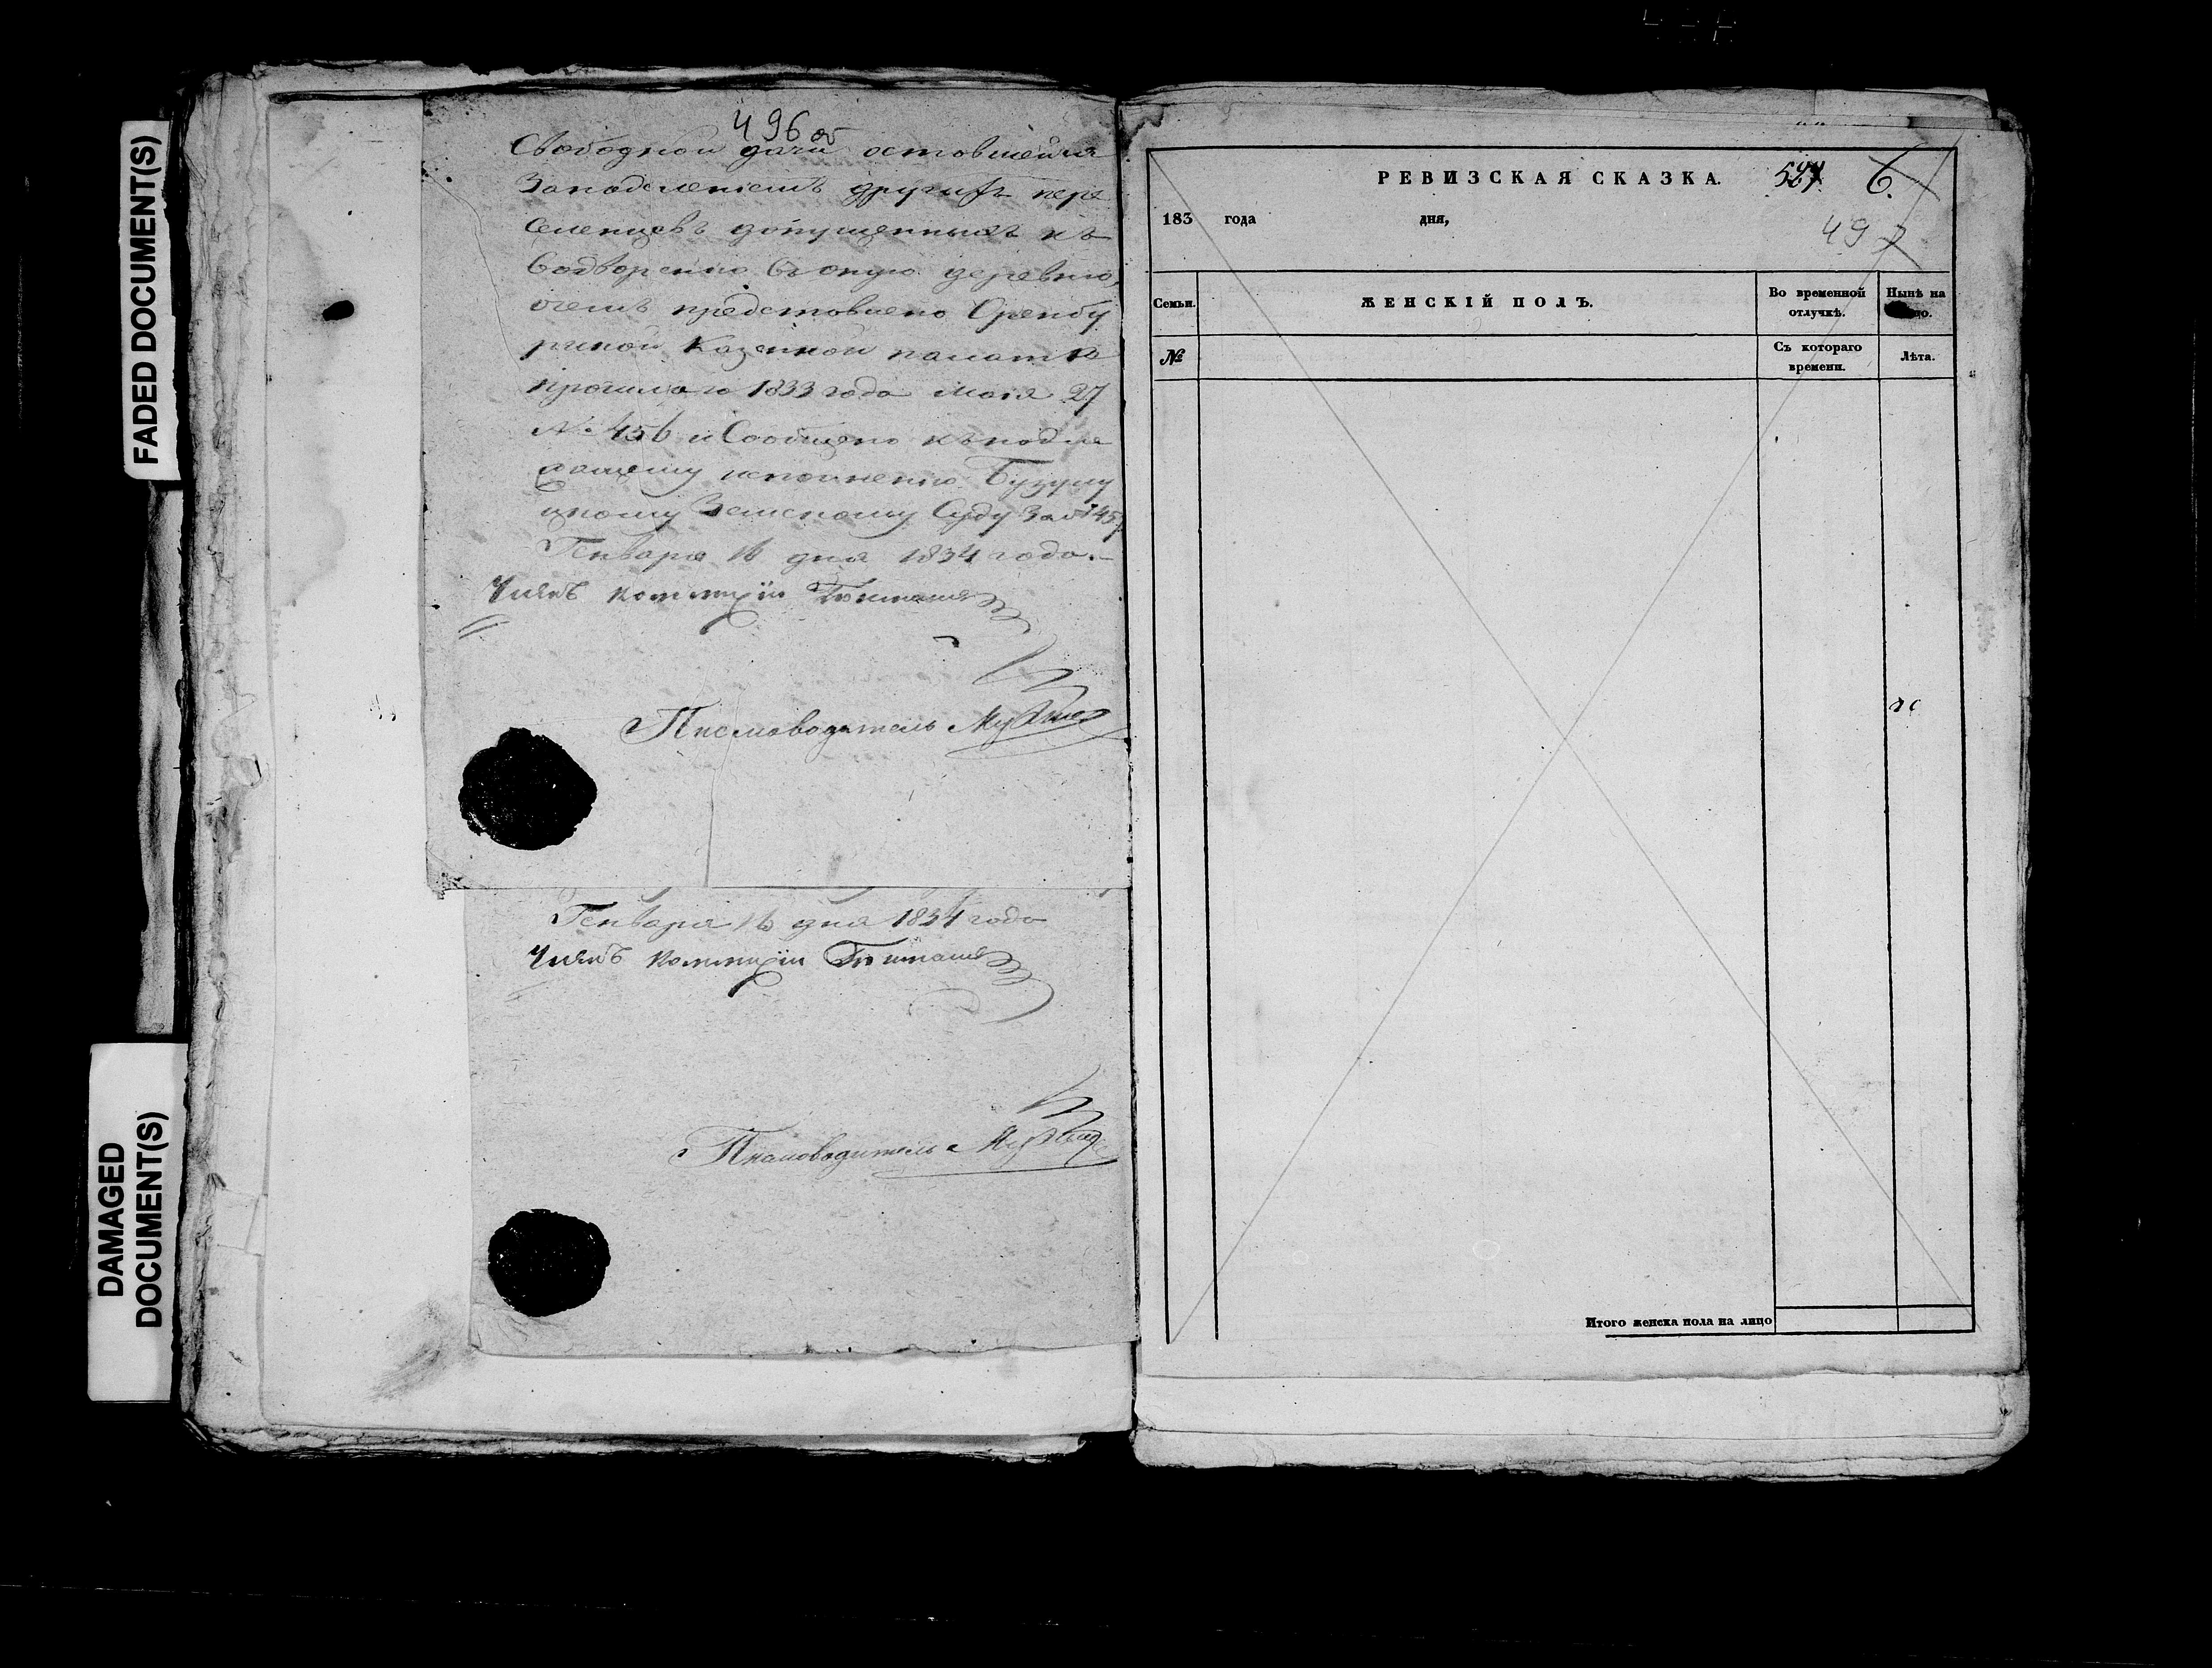 FADED DOCUMENT(S)
DAMAGED
DOCUMENT(S)
496 об
Свободной дачи оставшейся
За наделениемъ другихъ пере
селенцовъ допущенныхъ къ
водворению въ оную деревню,
о чемъ представлено Оренбу
ргской Казенной палатѣ
прошлаго 1833 года мая 27
№ 456 и Сообщено къ подле
жащему исполнению Бузулу
цкому Земскому Суду За № 457
Генваря 16 дня 1834 года.
Членъ Коммиции
Писмоводитель
Генваря 16 дня 1834 года
Членъ Коммиции
Писмоводитель
РЕВИЗСКАЯ СКАЗКА.
6.
183 года дня,
497
Семьи.
ЖЕНСКІЙ ПОЛЪ.
Во временной
отлучкѣ.
Нынѣ на
№
Съ котораго
времени.
Лѣта.
Итого женска пола на лицо